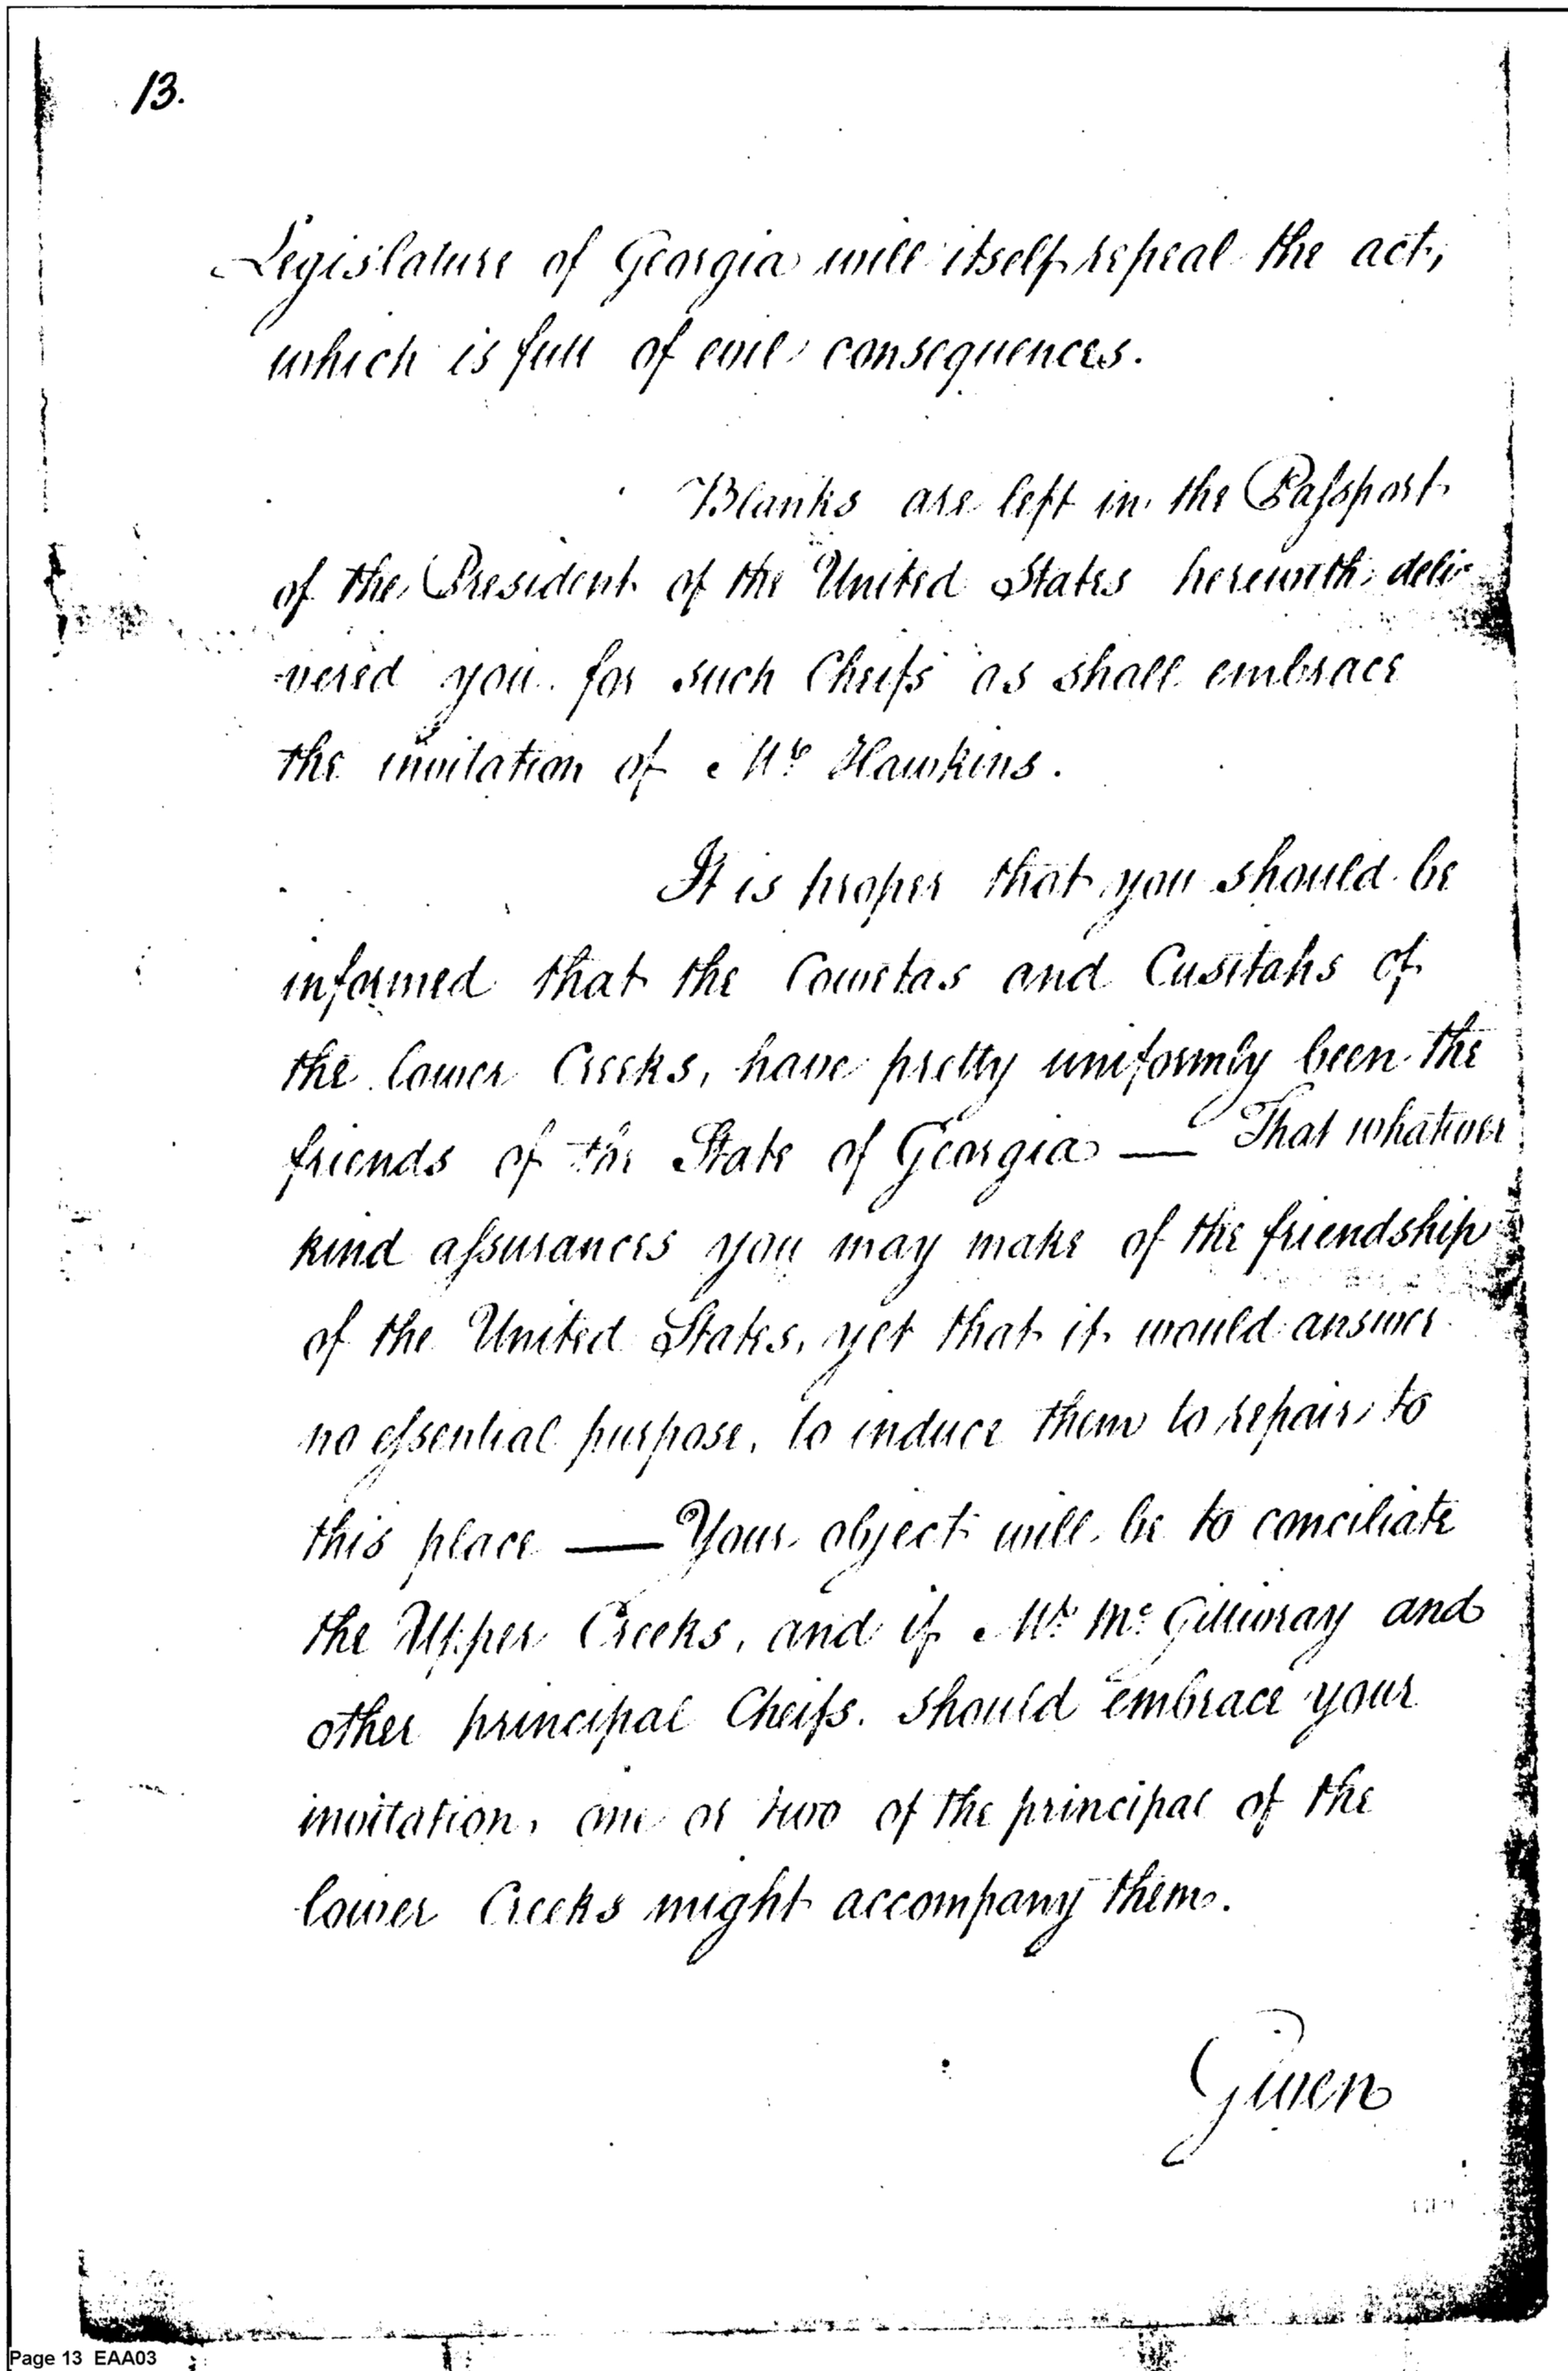 13.
Legislature of Georgia will itself repeal the act,
which is full of evil consequences.
Blanks are left in the Paſsport
of the President of the United States herewith deli-
vered you for such Cheifs as shall embrace
the invitation of Mr Hawkins.
It is proper that you should be
informed that the Cowetas and Cusitahs of
the lower Creeks, have pretty uniformly been the
friends of the State of Georgia — That whatever
kind aſsurances you may make of the friendship
of the United States, yet that it would answer
no eſsential purpose, to induce them to repair to
this place — Your object will be to conciliate
the Upper Creeks, and if Mr Mc Gillivray and
other principal Cheifs. should embrace your
invitation, one or two of the principal of the
lower Creeks might accompany them.
Given
Page 13 EAA03